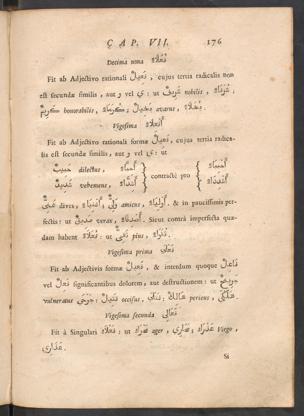 CAP. VII. 176
Decima nona فُعَلَاءُ
Fit ab Adjectivo rationali فَعِيلٌ, cujus tertia radicalis non
est secundæ similis, aut و vel ي: ut شَرِيفٌ nobilis, شُرَفَاءُ,
كَرِيمٌ honorabilis, كُرَمَاءُ; بَخِيلٌ avarus, بُخَلَاءُ.
Vigesima أَفْعِلَاءُ
Fit ab Adjectivo rationali formæ فَعِيلٌ, cujus tertia radica-
lis est secundæ similis, aut و vel ي: ut
حَبِيبٌ dilectus, أَحِبَّاءُ contractè pro أَحْبِبَاءُ
شَدِيدٌ vehemens, أَشِدَّاءُ أَشْدِدَاءُ
غَنِيٌّ dives, أَغْنِيَاءُ; وَلِيٌّ amicus, أَوْلِيَاءُ. & in paucissimis per-
fectis: ut صَدِيقٌ verax, أَصْدِقَاءُ. Sicut contrà imperfecta quæ-
dam habent فُعَلَاءُ: ut تَقِيٌّ pius, تُقَوَاءُ.
Vigesima prima فَعْلَى
Fit ab Adjectivis formæ فَعِيلٌ, & interdum quoque فَاعِلٌ
vel فَعِلٌ significantibus dolorem, aut destructionem: ut جَرِيحٌ
vulneratus جَرْحَى; قَتِيلٌ occisus, قَتْلَى; هَالِكٌ periens, هَلْكَى.
Vigesima secunda فَعَالَى
Fit à Singulari فَعْلَاءُ: ut صَحْرَاءُ ager, صَحَارَى; عَذْرَاءُ Virgo,
عَذَارَى.
Si